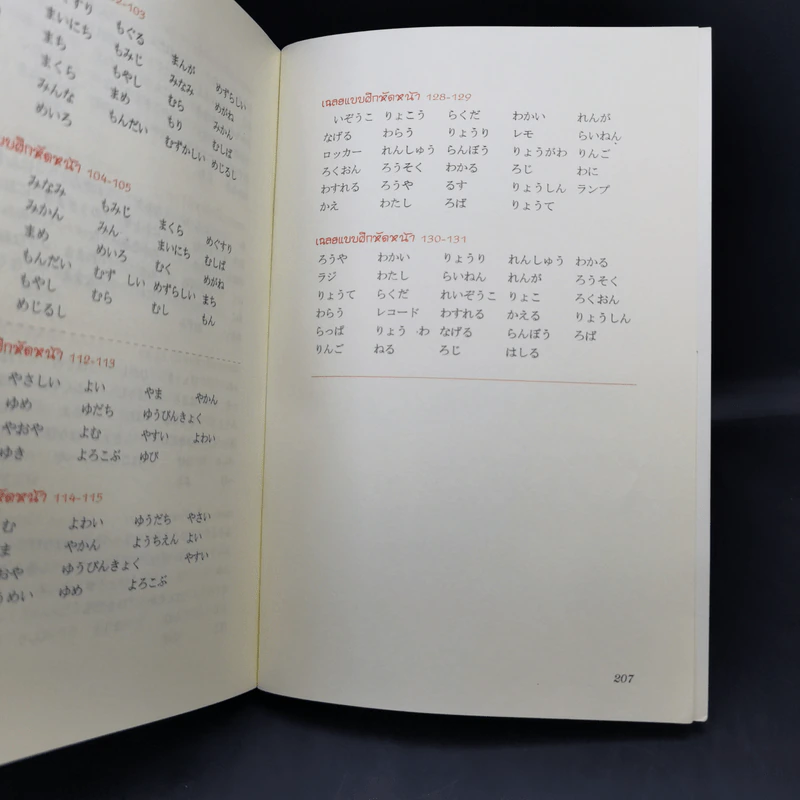 2-103
すり もぐる
まいにち もみじ まんが めずらしい
まち もやし みなみ めがね
まくら まめ むら みかん
みんな もんだい もり むしば
めいろ むずかしい めじるし
แบบฝึกหัดหน้า 104-105
みなみ もみじ まくら めぐすり
みかん みん まいにち むしば
まめ めいろ むく めがね
もんだい むず しい めずらしい まち
もやし むら むし もん
めじるし
ฝึกหัดหน้า 112-113
やさしい よい やま やかん
ゆめ ゆだち ゆうびんきょく
やおや よむ やすい よわい
ゆき よろこぶ ゆび
หัดหน้า 114-115
む よわい ゆうだち やさい
ま やかん ようちえん よい
おや ゆうびんきょく やすい
うめい ゆめ よろこぶ
เฉลยแบบฝึกหัดหน้า 128-129
いぞうこ りょこう らくだ わかい れんが
なげる わらう りょうり レモ らいねん
ロッカー れんしゅう らんぼう りょうがわ りんご
ろくおん ろうそく わかる ろじ わに
わすれる ろうや るす りょうしん ランプ
かえ わたし ろば りょうて
เฉลยแบบฝึกหัดหน้า 130-131
ろうや わかい りょうり れんしゅう わかる
ラジ わたし らいねん れんが ろうそく
りょうて らくだ れいぞうこ りょこ ろくおん
わらう レコード わすれる かえる りょうしん
らっぱ りょう わ なげる らんぼう ろば
りんご ねる ろじ はしる
207